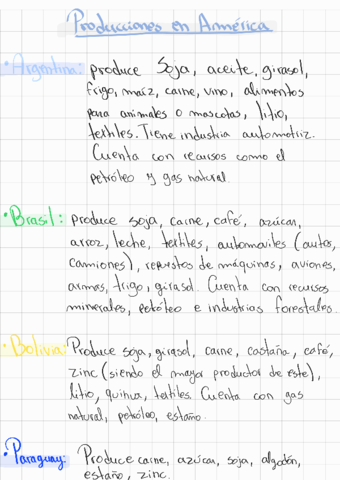 Producciones en América
• Argentina: produce Soja, aceite, girasol,
frigo, maíz, carne, vino, alimentos
para animales o mascotas, litio,
textiles. Tiene industria automotriz.
Cuenta con recursos como el
petróleo y gas natural.
• Brasil: produce soja, carne, café, azúcar,
arroz, leche, textiles, automoviles (autos,
camiones), repuestos de máquinas, aviones,
armas, trigo, girasol. Cuenta con recursos
minerales, petróleo e industrias forestales.
• Bolivia: Produce soja, girasol, carne, castaña, café,
zinc (siendo el mayor productor de este),
litio, quinua, textiles. Cuenta con gas
natural, petróleo, estaño.
• Paraguay: Produce carne, azúcar, soja, algodón,
estaño, zinc.